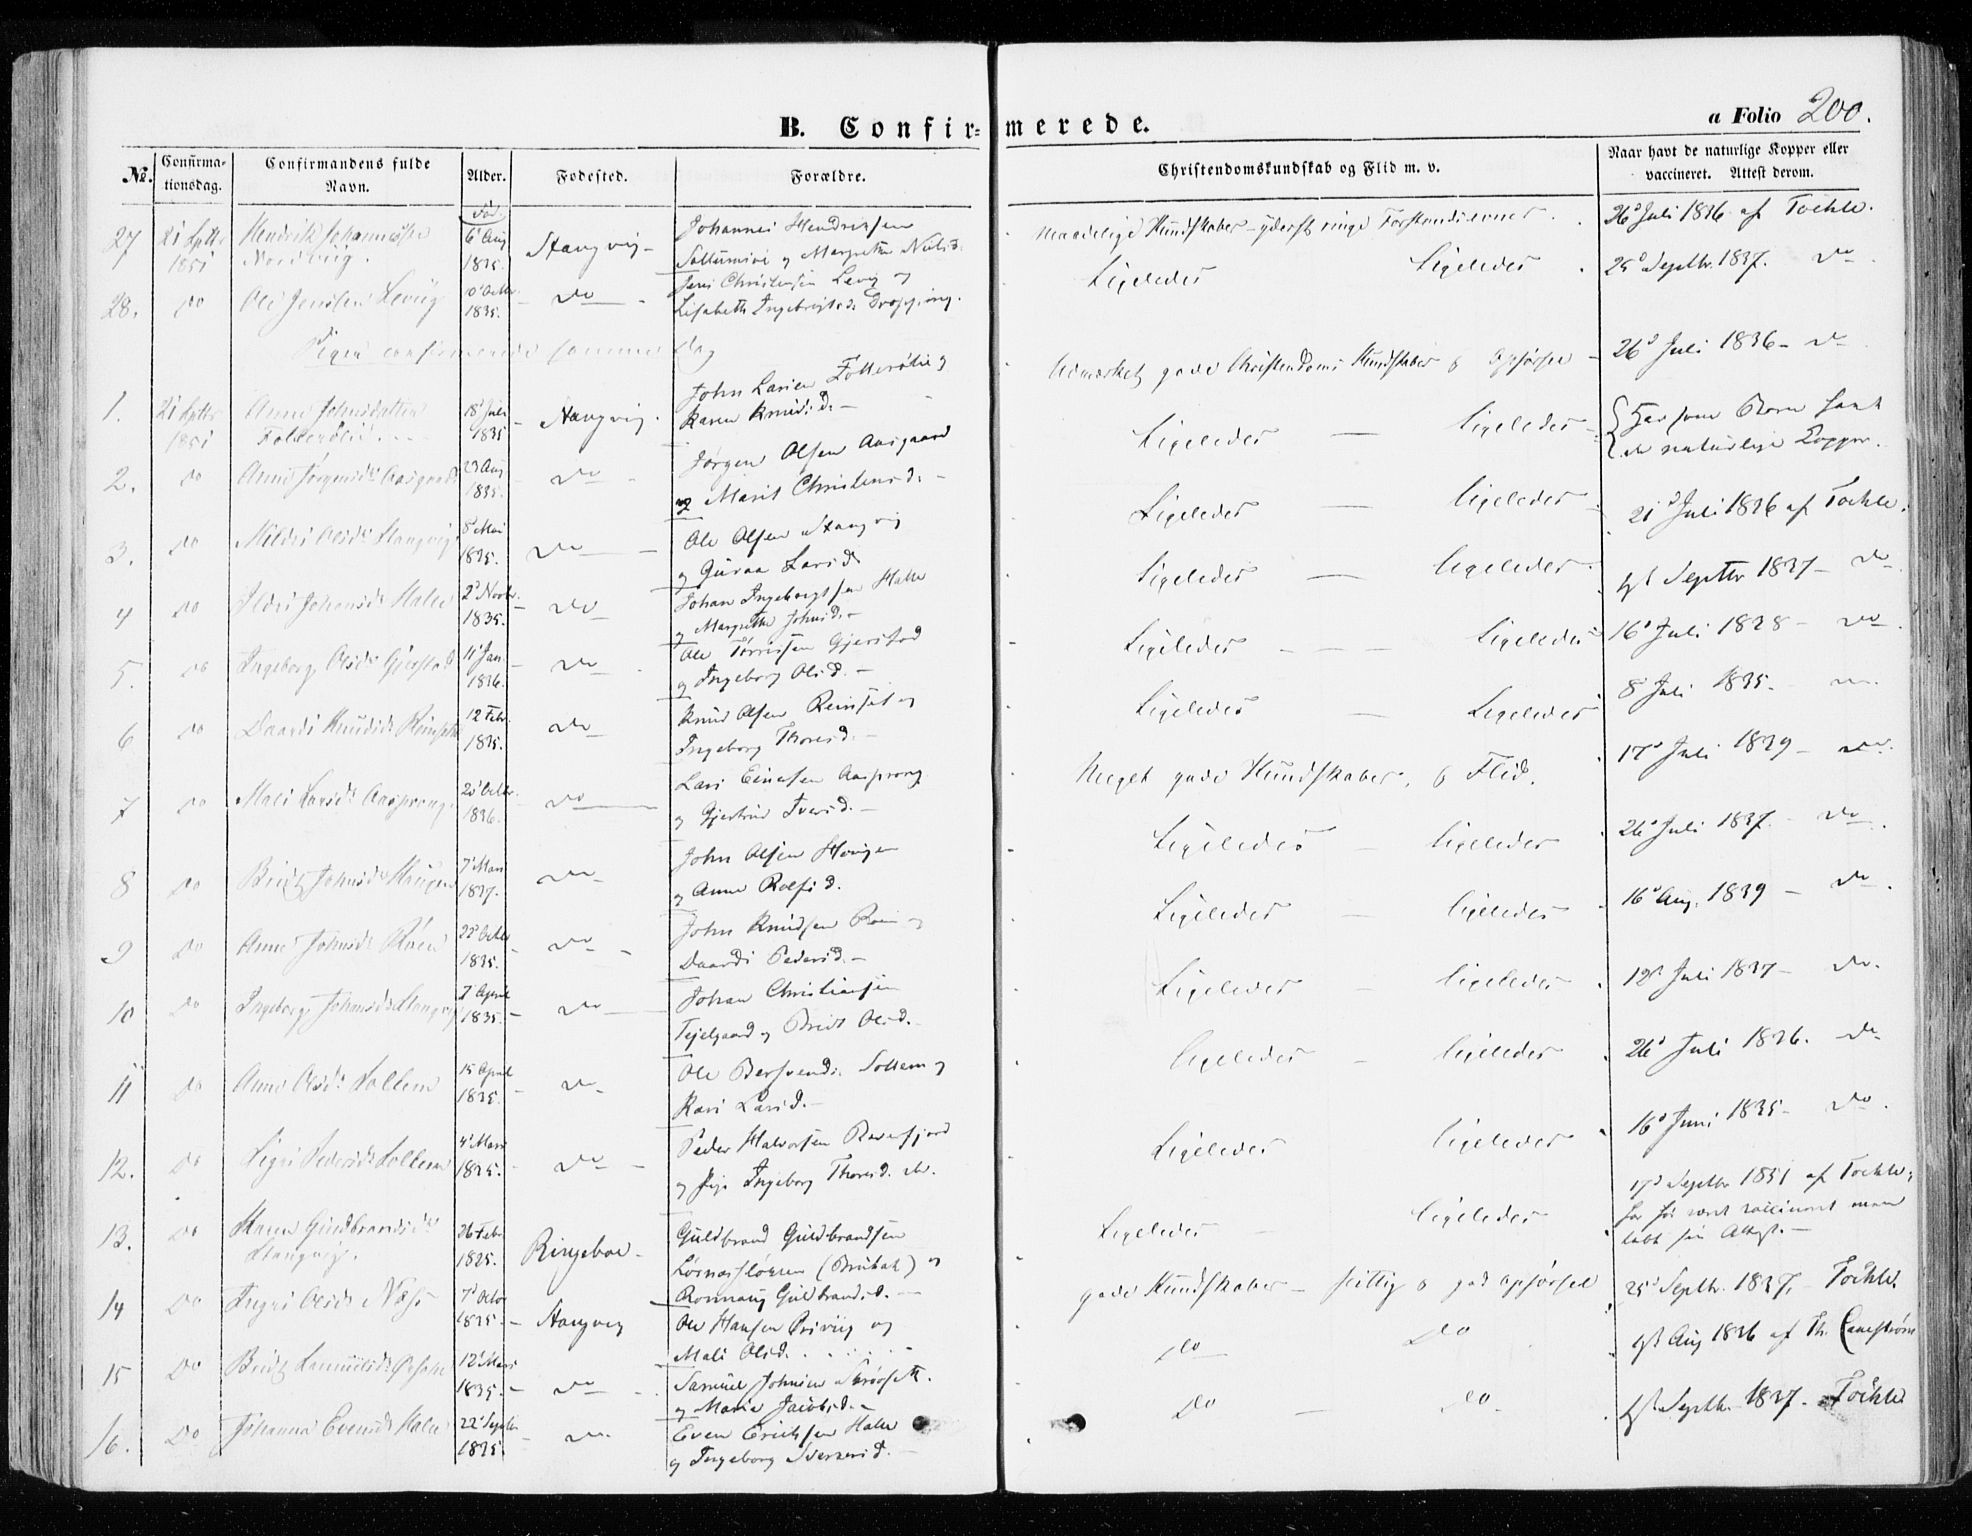 B. Confir=merede.
a Folio 200.
№.
Confirma-
tionsdag.
Confirmandens fulde
Navn.
Alder.
Fødested.
Forældre.
Christendomskundskab og Flid m. v.
Naar havt de naturlige Kopper eller
vaccineret. Attest derom.
Fød.
27 21 Septbr 1851 Hendrik Johannes 6 Aug 1835. Stangvig Johannes Hendriksen
og Margrethe Nielsd. Maadelige Kundskaber - yderst ringe Forstandsevner. 26d Juli 1836 af Tochle.
28. do Ole Jensen Leviig 10 Octbr. 1835. do Jens Christensen Levig og
Lisabeth Ingebrigtsd. Ligeledes Ligeledes 25d Septbr. 1837. do
Piger confirmerede samme Dag
1. 21 Septbr 1851 Anne Johnsdatter 18 Juli 1835 Stangvig. John Larsen og
Karen Knudsd. Udmærket gode Christendoms Kundskaber & Opførsel 26d Juli 1836 - do
2. do Anne Jørgensd. Aasgaard 23 Aug 1835. do Jørgen Olsen Aasgaard
og Marit Christensd. Ligeledes — ligeledes Har som Barn havt
de naturlige Kopper.
3. do Mildri Olsd. Stangvig 8 Mai 1835. do Ole Olsen Stangvig
og Guroa Larsd. Ligeledes — ligeledes 21d Juli 1836 af Tochle.
4 do Ildri Johansd. Halle 2 Novbr. 1835. do Johan Ingebrigtsen Halle
og Margrethe Johnsd. Ligeledes — ligeledes Septbr 1837 - do
5. do Ingeborg Olsd. Gjerstad 11 Jan 1836. do Ole Tørrissen Gjerstad
og Ingeborg Olsd. Ligeledes - - - Ligeledes 16d Juli 1838 - do
6 do Daardi Knudsd. Reinset 12 Febr. 1835. do Knud Olsen Reinset og
Ingeborg Thoresd. Ligeledes — Ligeledes 8 Juli 1835. do
7 do Mali Larsd. Aasprong 20 Octbr. 1836. do Lars Einersen Aasprong
og Gjertrud Iversd. Meget gode Kundskaber & Flid. 17d Juli 1839 - do
8 do Brit Johnsd. Haugen 7 Mars 1837. do John Olsen Haugen
og Anne Rolfsd. Ligeledes - ligeledes 26d Juli 1837. - do
9 do Anne Johnsd. Røen 22 Octbr 1835. do John Knudsen Røen og
Daardi Pedersd. Ligeledes - ligeledes 16d Aug. 1839 - do
10 do Ingeborg Johansd. Stangvig 7 April 1835. do Johan Christiansen
Tejelgaard og Brit Olsd. Ligeledes - ligeledes 12d Juli 1837 - do
11 do Anne Olsd. Sollem 15 April 1835. do Ole Bersvends. Sollem og
Kari Larsd. ligeledes - ligeledes 26d Juli 1836. do
12. do Sigri Pedersd. Sollem 4 Mars 1835. do Peder Halvorsen
og Pige Ingeborg Thoresd. Ligeledes ligeledes 16d Juni 1835 - do
13. do Karen Guldbrandsd.
Stangvig. 26 Febr. 1835. Ringeboe Guldbrand Guldbrandsen
(Brubak) og
Ronnaug Guldbrandsd. Ligeledes - ligeledes 17d Septbr 1851 af Tochle;
har før været vaccineret men
tabt sin Attest.
14 do Ingri Olsd. Næss 7 Octbr 1835 Stangvig Ole Hansen og
Mali Olsd. gode Kundskaber - flittig & god opførsel 25d Septbr. 1837. Tochle
15 do Brit Samuelsd. 12 Mars 1835. do Samuel Johnsen
og Marie Jacobsd. do do Aug 1836 af Th.
16. do Johanna Evensd. Halle 22 Septbr 1835. do Even Erichsen Halle
og Ingeborg Sversd. do — do Septbr. 1837. Tochle